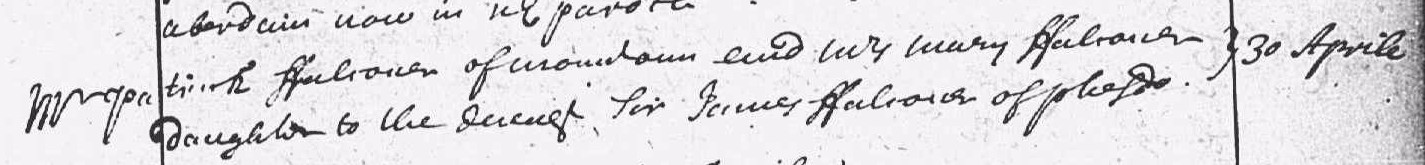 aberdain now in parock
Mr patrick ffalconer of monidom and Mrs mary ffalconer } 30 Aprile
daughter to the deceast Sir James ffalconer of phesdo.